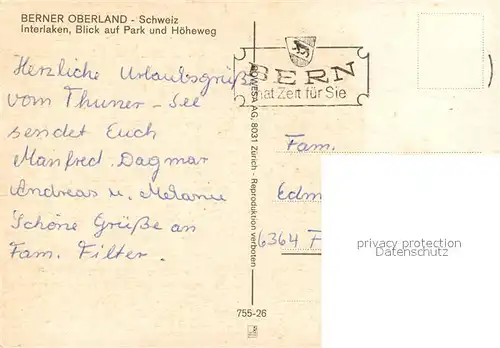 BERNER OBERLAND - Schweiz
Interlaken, Blick auf Park und Höheweg
Herzliche Urlaubsgrüße
vom Thuner-See
sendet Euch
Manfred Dagmar
Andreas u. Melanie
Schöne Grüße an
Fam. Filter.
BERN
hat Zeit für Sie
ROWESA AG, 8031 Zürich - Reproduktion verboten
755-26
Fam.
Edm
6364 F
privacy protection
Datenschutz